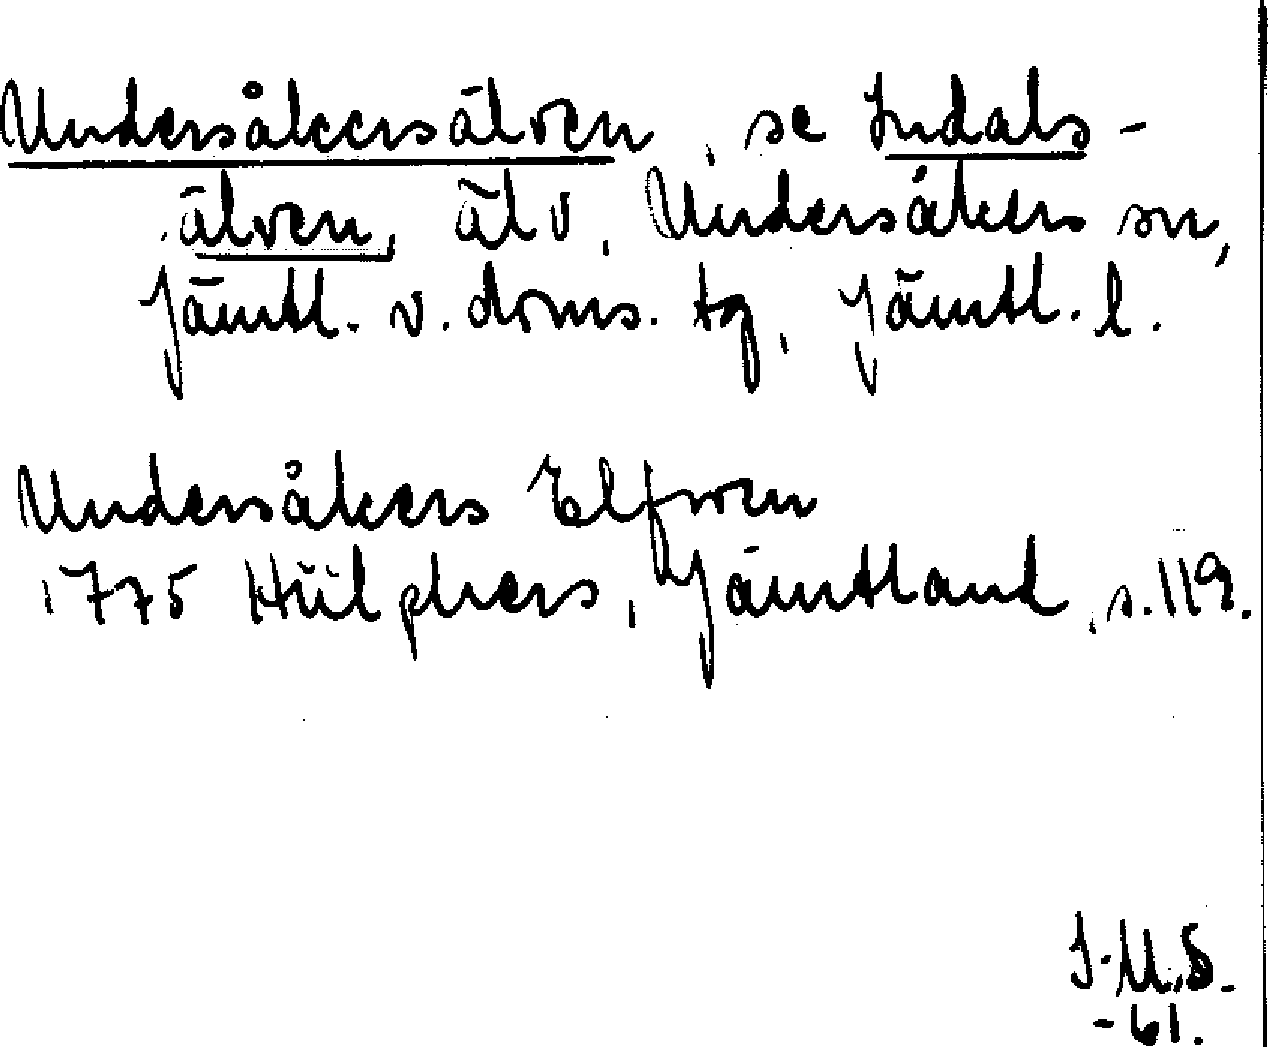 Undersåkersälven, se Indals-
älven, älv, Undersåkers sn,
Jämtl. v. doms. tg, Jämtl. l.
Undersåkers Elfwen
1775 Hülphers, Jämtland, s. 119.
I.M.S.
-61.